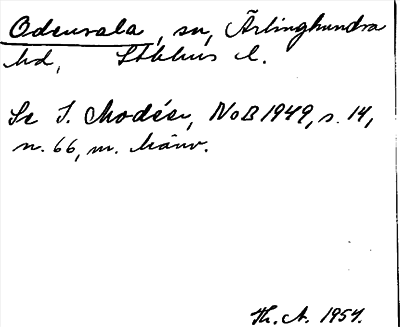 Odensala, sn, Ärlinghundra
hd, Sthlms l.
Se I. Modéer, NoB 1949, s. 14,
n. 66, m. hänv.
Th. A. 1954.